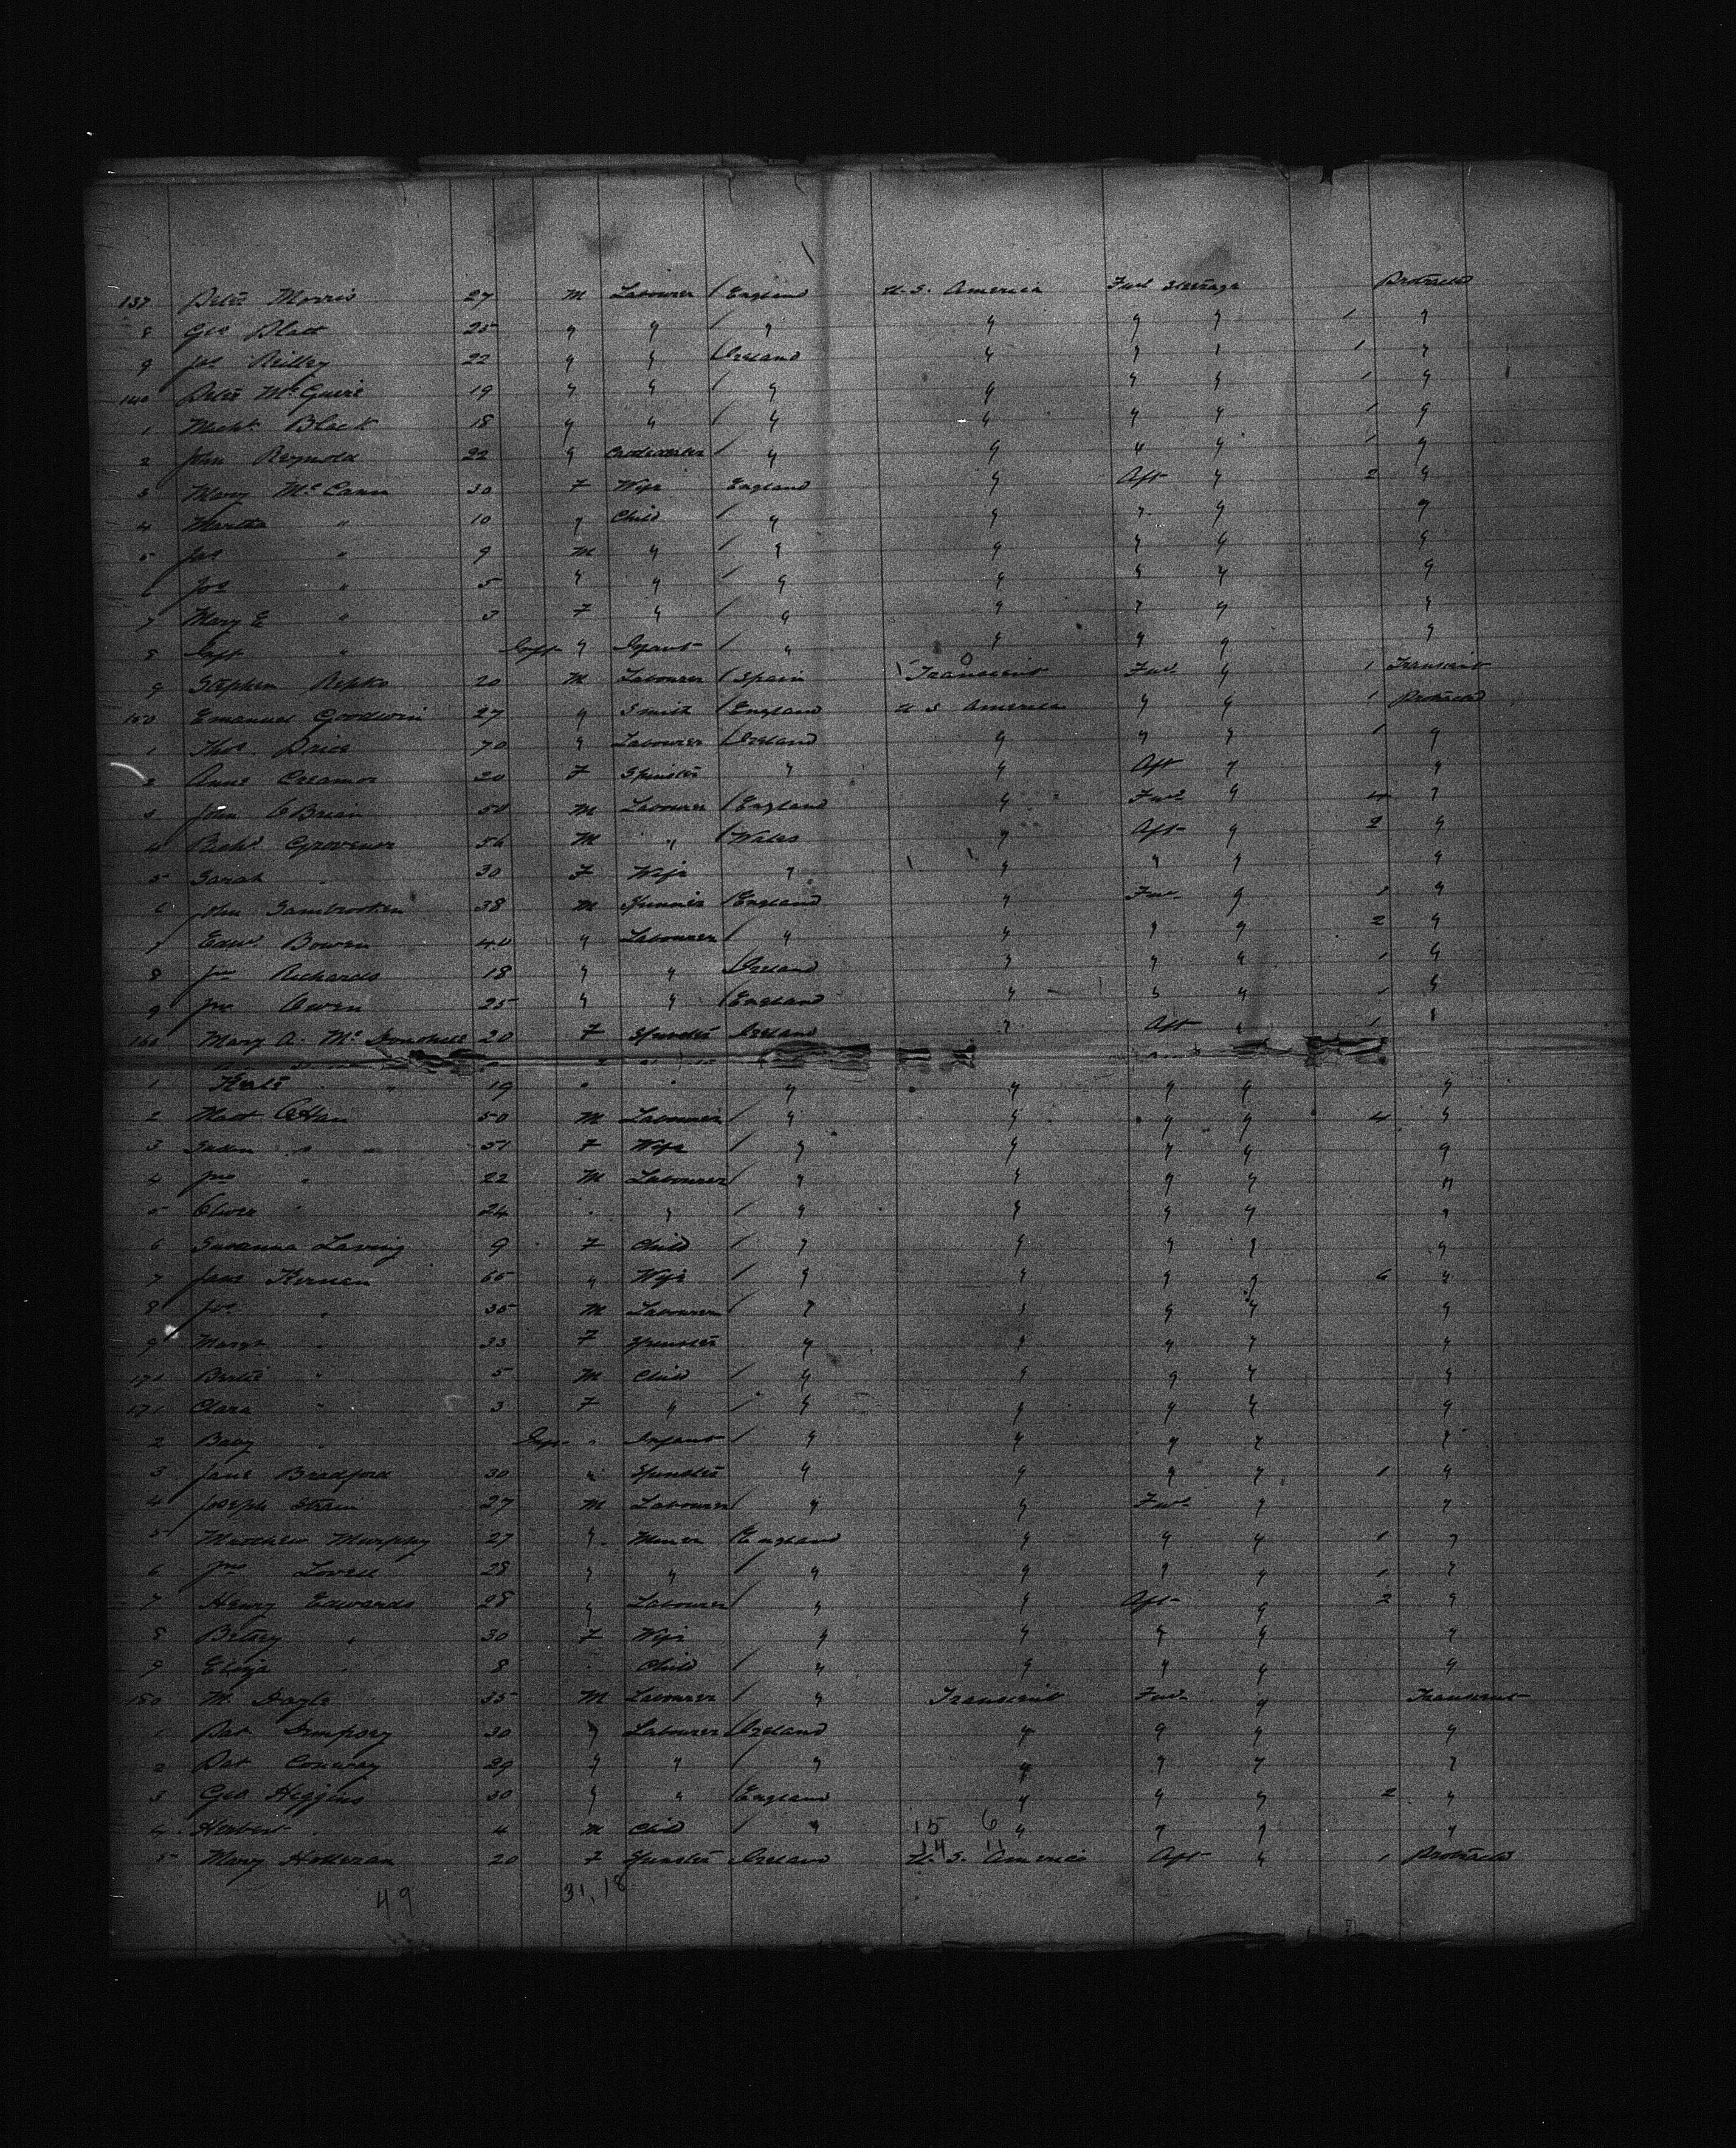 137 Peter Morris 27 M Labourer / England U.S. America Fwd Steerage Protracted
8 Geo Platt 25 " " / " " " " 1 "
9 Jas Reilley 22 " " / Ireland " " " 1 "
140 Peter McGuire 19 " " / " " " " 1 "
1 Black 18 " " / " " " " 1 "
2 John Reynold 22 " / " " " " 1 "
3 Mary McCann 30 F Wife England " Aft " 2 "
4 Martha " 10 " Child / " " " " "
5 Jas " 9 M " / " " " " "
6 Jos " 5 " " / " " " " "
7 Mary E " 3 F " / " " " " "
8 Inft " Inft " Infant / " " " " "
9 Stephen Repko 20 M Labourer / Spain Transcient Fwd " 1 Transcient
150 Emanuel Goodwin 27 " Smith / England U S America " " 1 Protracted
1 Thos Price 70 " Labourer / Ireland " " " 1 "
2 Anne Creamor 20 F Spinster " " Aft " "
3 John O'Brian 50 M Labourer / England " Fwd " 4 "
4 Richd Grovenor 56 M " / Wales " Aft " 2 "
5 Sarah " 30 F Wife " " " " "
6 John 38 M / England " Fwd " 1 "
7 Edwd Bowen 40 " Labourer / " " " " 2 "
8 Jno Richards 18 " " / Ireland " " " 1 "
9 Jno Owen 25 " " / England " " " 1 "
160 Mary A. Mc 20 F Spinster Ireland " Aft " 1 "
1 " 19 " " " " " " "
2 Matt O'Han 50 M Labourer / " " " " 4 "
3 " 51 F Wife / " " " " "
4 Jno " 22 M Labourer / " " " " "
5 Oliver " 24 " " / " " " " "
6 Susanna Laving 9 F Child / " " " " "
7 Jane Kernan 65 " Wife / " " " " 6 "
8 Jos " 35 M Labourer / " " " " "
9 Margt " 33 F Spinster " " " " "
170 Bertie " 5 M Child / " " " " "
171 Clara " 3 F " / " " " " "
2 Baby " Inft " Infant / " " " " "
3 Jane Bradford 30 " Spinster " " " " 1 "
4 Joseph Strain 27 M Labourer / " " Fwd " "
5 Matthew Murphy 27 " Miner / England " " " 1 "
6 Jno Lovell 28 " " / " " " " 1 "
7 Henry Edwards 28 " Labourer / " " Aft " 2 "
8 Betsey " 30 F Wife " " " " "
9 Eliza " 8 " Child / " " " " "
180 M. Hayle 35 M Labourer / " Transcient Fwd " Transcient
1 Pat Dempsey 30 " Labourer / Ireland " " " "
2 Pat Conway 29 " " / " " " " "
3 Geo Higgins 30 " " / England " " " 2 "
4 Herbert " 4 M Child / " 15 6 " " " "
5 Mary Holleran 20 F Spinster Ireland 14 11 U.S. America Aft " 1 Protracted
49 31, 18